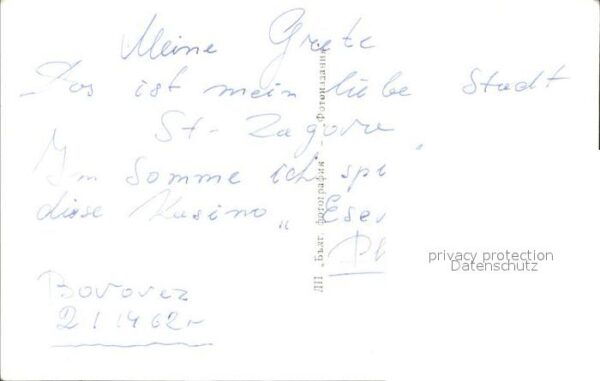 Meine Grete
Das ist mein liebe Stadt
St-Zagora
Im Somme ich spi
diese Kasino „ Eser
Borovez
2 I 1962 r
ДП „Бълг. фотография“ – Фотоиздания
privacy protection
Datenschutz